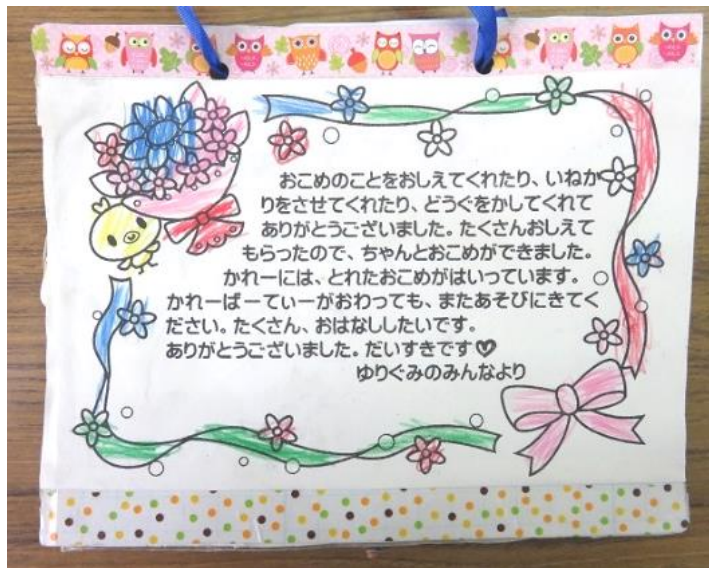 おこめのことをおしえてくれたり、いねか
りをさせてくれたり、どうぐをかしてくれて
ありがとうございました。たくさんおしえて
もらったので、ちゃんとおこめができました。
かれーには、とれたおこめがはいっています。
かれーぱーてぃーがおわっても、またあそびにきてく
ださい。たくさん、おはなししたいです。
ありがとうございました。だいすきです♡
ゆりぐみのみんなより